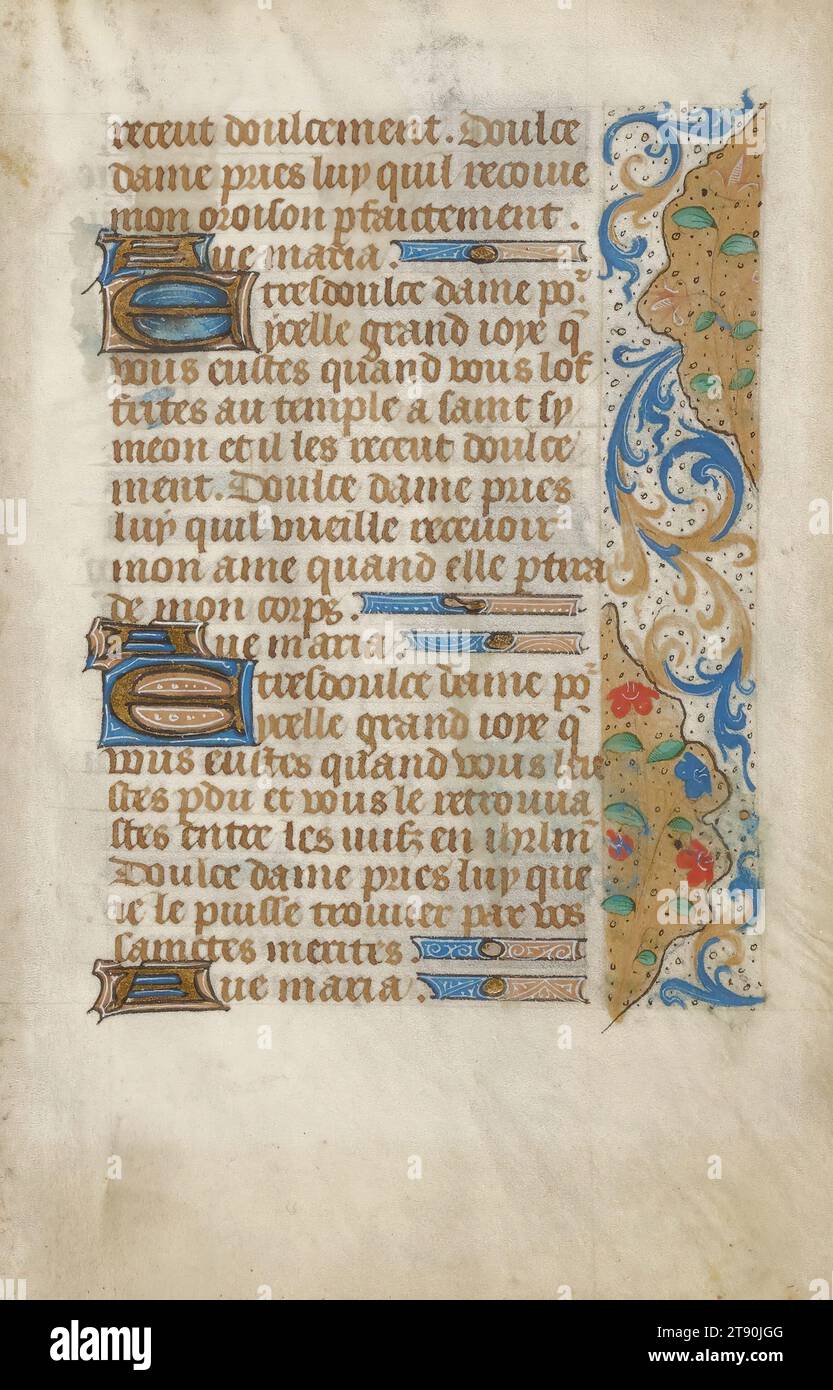 receut doulcement. Doulce
dame pries luy quil recoiue
mon oroison pfaictement.
Aue maria.
E tresdoulce dame po᷑
ycelle grand ioye q̄
vous eustes quand vous lof
frites au temple a saint sy
meon et il les receut doulce
ment. Doulce dame pries
luy quil vueille receuoir
mon ame quand elle ptira
de mon corps.
Aue maria.
E tresdoulce dame po᷑
ycelle grand ioye q̄
vous eustes quand vous leu
stes pdu et vous le retrouua
stes entre les iuifz en ihrlm̄
Doulce dame pries luy que
ie le puisse trouuer par vos
sainctes merites
Aue maria.
a
alamy
Image ID: 2T90JGG
www.alamy.com